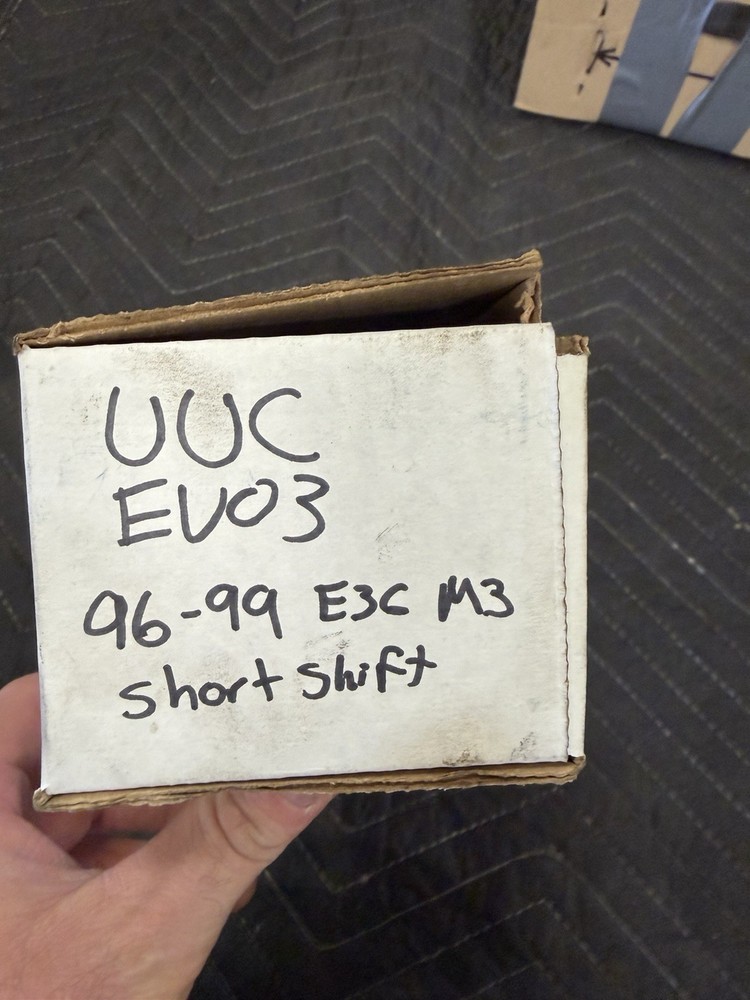 UUC
EVO3
96-99 E36 M3
short shift